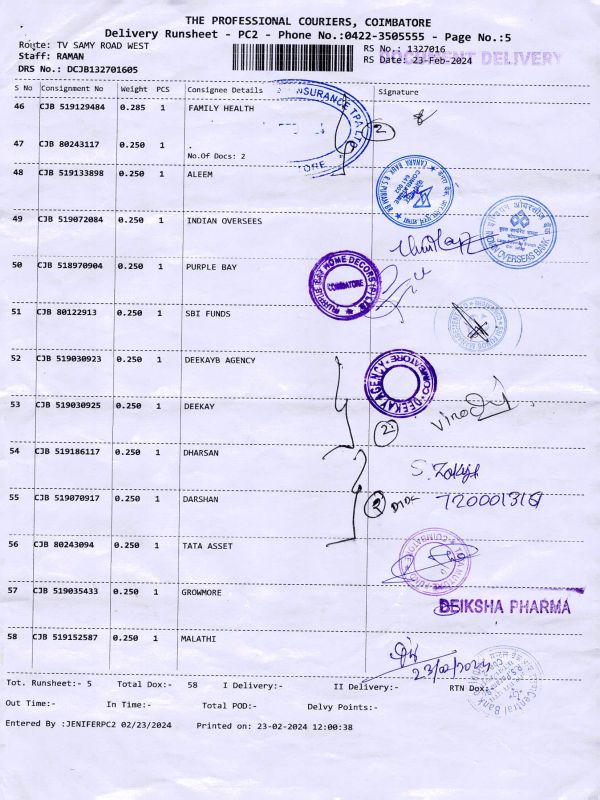 THE PROFESSIONAL COURIERS, COIMBATORE
Delivery Runsheet - PC2 - Phone No.:0422-3505555 - Page No.:5
Route: TV SAMY ROAD WEST
RS No.: 1327016
Staff: RAMAN
RS Date: 23-Feb-2024
DOCUMENT DELIVERY
DRS No.: DCJB132701605
S No Consignment No Weight PCS Consignee Details Signature
46 CJB 519129484 0.285 1 FAMILY HEALTH
INSURANCE TPA LTD
2
47 CJB 80243117 0.250 1 .
No.Of Docs: 2
48 CJB 519133898 0.250 1 ALEEM
CANARA BANK
49 CJB 519072084 0.250 1 INDIAN OVERSEES
INDIAN OVERSEAS BANK
50 CJB 518970904 0.250 1 PURPLE BAY
PURPLE BAY HOME DECORS (P) LTD
COIMBATORE
51 CJB 80122913 0.250 1 SBI FUNDS
52 CJB 519030923 0.250 1 DEEKAYB AGENCY
DEEKAY AGENCY COIMBATORE
53 CJB 519030925 0.250 1 DEEKAY
2
54 CJB 519186117 0.250 1 DHARSAN
55 CJB 519070917 0.250 1 DARSHAN
2
56 CJB 80243094 0.250 1 TATA ASSET
57 CJB 519035433 0.250 1 GROWMORE
DEIKSHA PHARMA
58 CJB 519152587 0.250 1 MALATHI
23/02/2024
Central Bank
Tot. Runsheet:- 5 Total Dox:- 58 I Delivery:- II Delivery:- RTN Dox:-
Out Time:- In Time:- Total POD:- Delvy Points:-
Entered By :JENIFERPC2 02/23/2024 Printed on: 23-02-2024 12:00:38